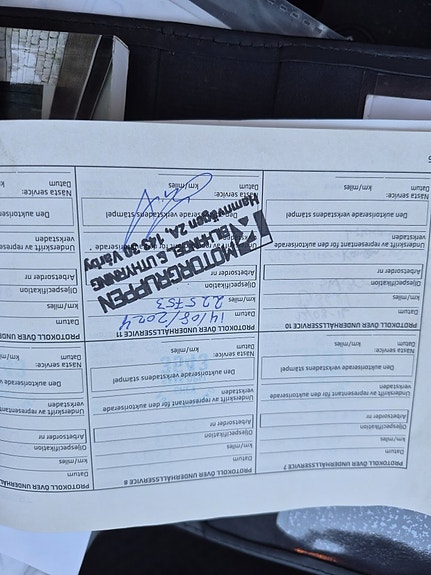 PROTOKOLL ÖVER UNDERHÅLLSSERVICE 7
Datum
km/miles
Oljespecifikation
Arbetsorder nr
Underskrift av representant för den auktoriserade
verkstaden
Den auktoriserade verkstadens stämpel
Nästa service:
Datum
km/miles
PROTOKOLL ÖVER UNDERHÅLLSSERVICE 8
Datum
km/miles
Oljespecifikation
Arbetsorder nr
Underskrift av representant för den auktoriserade
verkstaden
Den auktoriserade verkstadens stämpel
Nästa service:
Datum
km/miles
PROTOKOLL ÖVER UNDERHÅLLS
Datum
km/miles
Oljespecifikation
Arbetsorder nr
Underskrift av representant
verkstaden
Den auktoriserade
Nästa service:
Datum
km/miles
PROTOKOLL ÖVER UNDERHÅLLSSERVICE 10
Datum
km/miles
Oljespecifikation
Arbetsorder nr
Underskrift av representant för den auktoriserade
verkstaden
Den auktoriserade verkstadens stämpel
Nästa service:
Datum
km/miles
PROTOKOLL ÖVER UNDERHÅLLSSERVICE 11
Datum 14/08/2024
km/miles 225753
MOTORGRUPPEN
BILHANDEL & UTHYRNING
Hamnvägen 2A, 143 30 Vårby
Den auktoriserade verkstadens stämpel
Nästa service:
Datum
km/miles
PROTOKOLL ÖVER UNDERHÅLLS
Datum
km/miles
Oljespecifikation
Arbetsorder nr
Underskrift av representant
verkstaden
Den auktoriserade
Nästa service:
Datum
km/miles